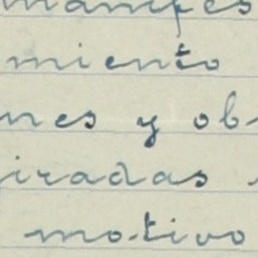 manifes
miento
nes y ob
iradas
motivo